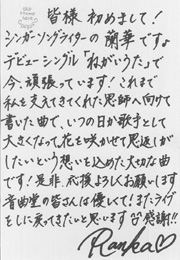 皆様 初めまして!
シンガーソングライターの蘭華ですょ
デビューシングル「ねがいうた」で
今、頑張っています! これまで
私を支えてきてくれた恩師へ向けて
書いた曲で、いつの日か歌手として
大きくなって花を咲かせて恩返しが
したいという想いを込めた大切な曲
です! 是非、応援よろしくお願いします
音曲堂の皆さんは優しくて! またライブ
をしに戻ってきたいと思います 感謝!!
Ranka♡